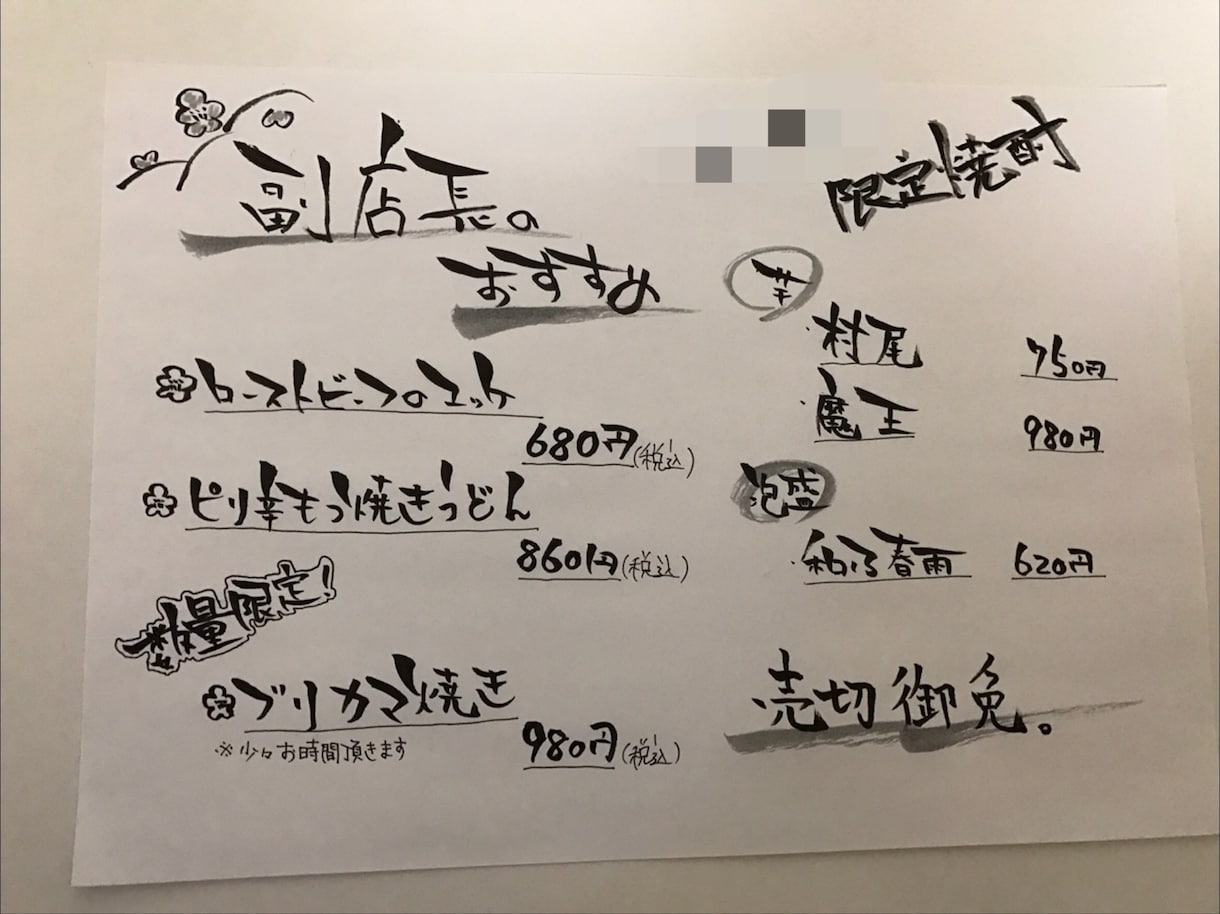 副店長の
おすすめ
ローストビーフのユッケ
680円(税込)
ピリ辛もつ焼きうどん
860円(税込)
数量限定!
ブリカマ焼き
※少々お時間頂きます
980円(税込)
限定焼酎
芋
・村尾 750円
・魔王 980円
泡盛
・和ろ春雨 620円
売切御免。